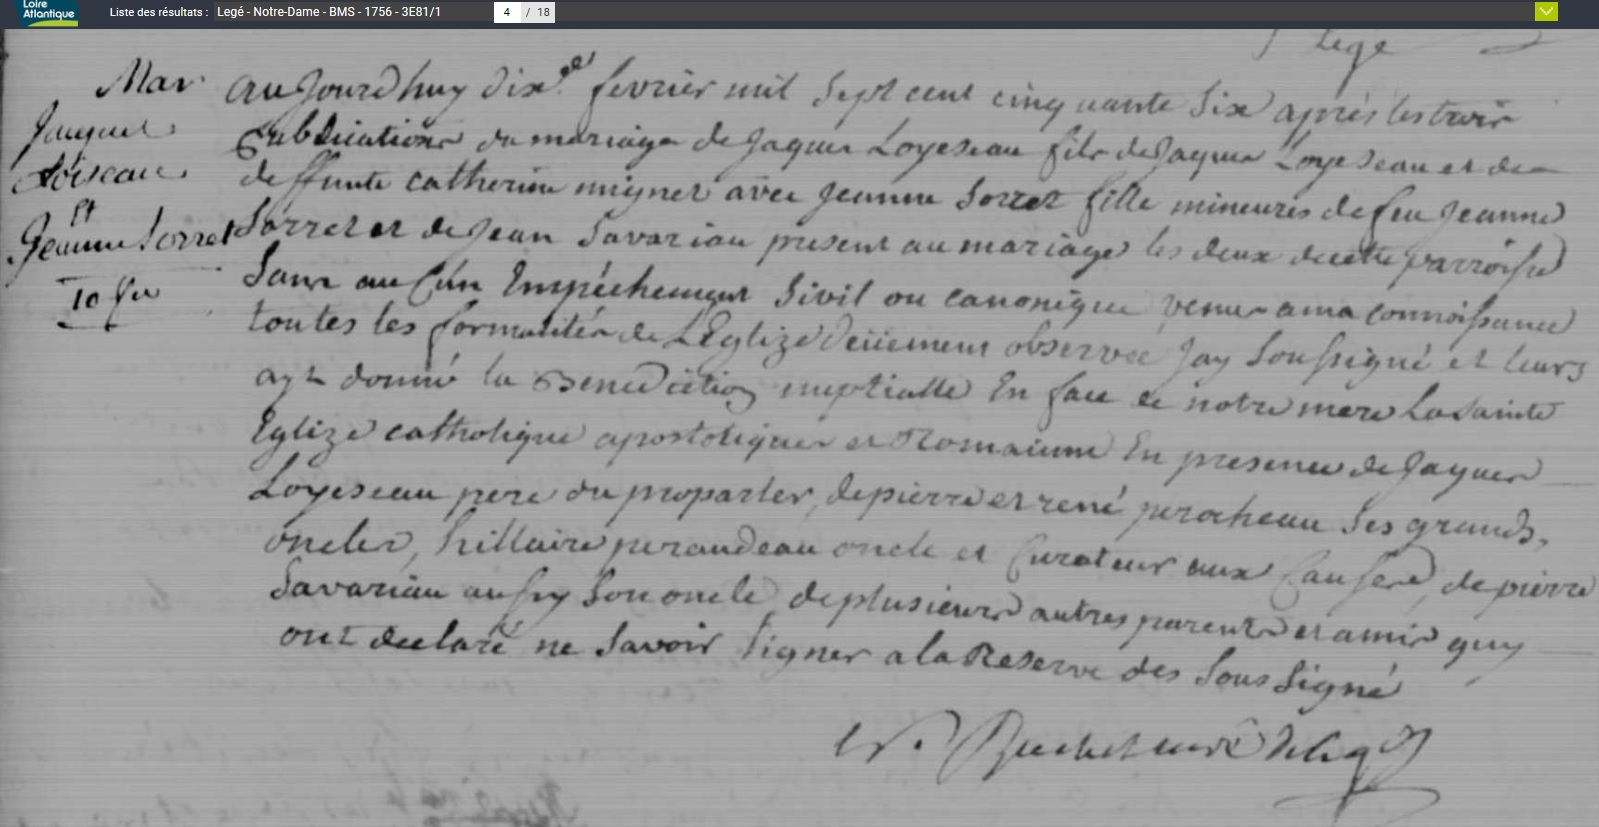 Loire
Atlantique
Liste des résultats : Legé - Notre-Dame - BMS - 1756 - 3E81/1
4 / 18
Legé
Mar
Jaques
Loiseau
Et
Jeanne Sorret
10 fer
aujourdhuy dixe fevrier mil sept cent cinquante six après les trois
publications du mariage de Jaques Loyeseau fils de Jaques Loyeseau et de
deffunte catherine mignet avec Jeanne Sorret fille mineures de feu Jeanne
Sorret et de Jean Savariau present au mariage les deux de cette parroisse
sans aucun Empéchement sivil ou canonique venus a ma connoissance
toutes les formalités de LEglize deüement observée Jay soussigné et leurs
ayt donné la Benediction nuptialle En face de notre mere La sainte
Eglize catholique apostolique et Romaine En presence de Jaques
Loyeseau pere du proparler, de pierre et rené perocheau ses grands
oncles, hillaire peraudeau oncle et Curateur aux Causes, de pierre
Savariau aussy son oncle de plusieurs autres parents et amis quy
ont declaré ne savoir signer a la Reserve des sous signé
curé de legé